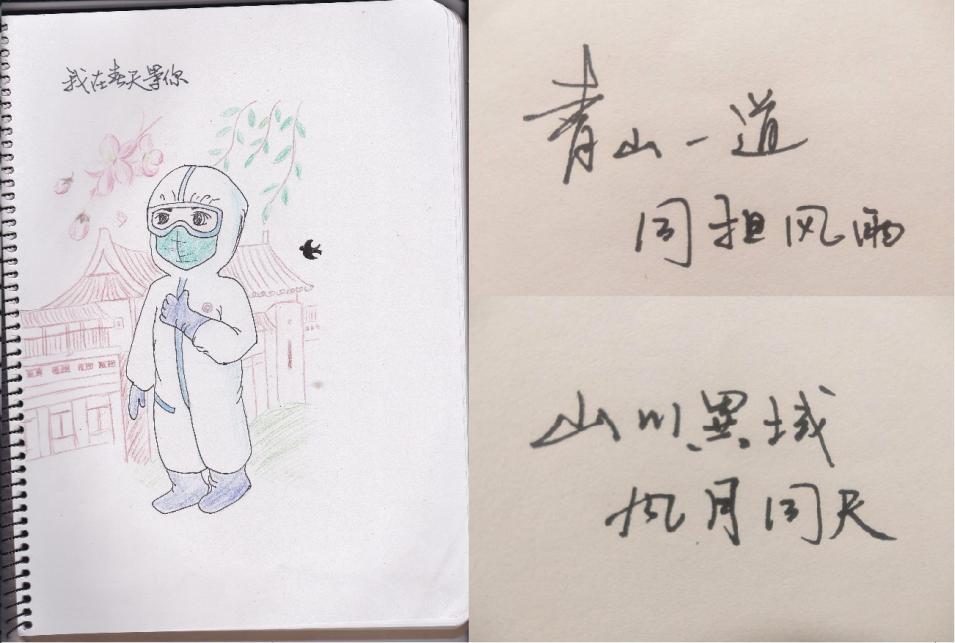 我在春天等你
青山一道
同担风雨
山川異域
风月同天